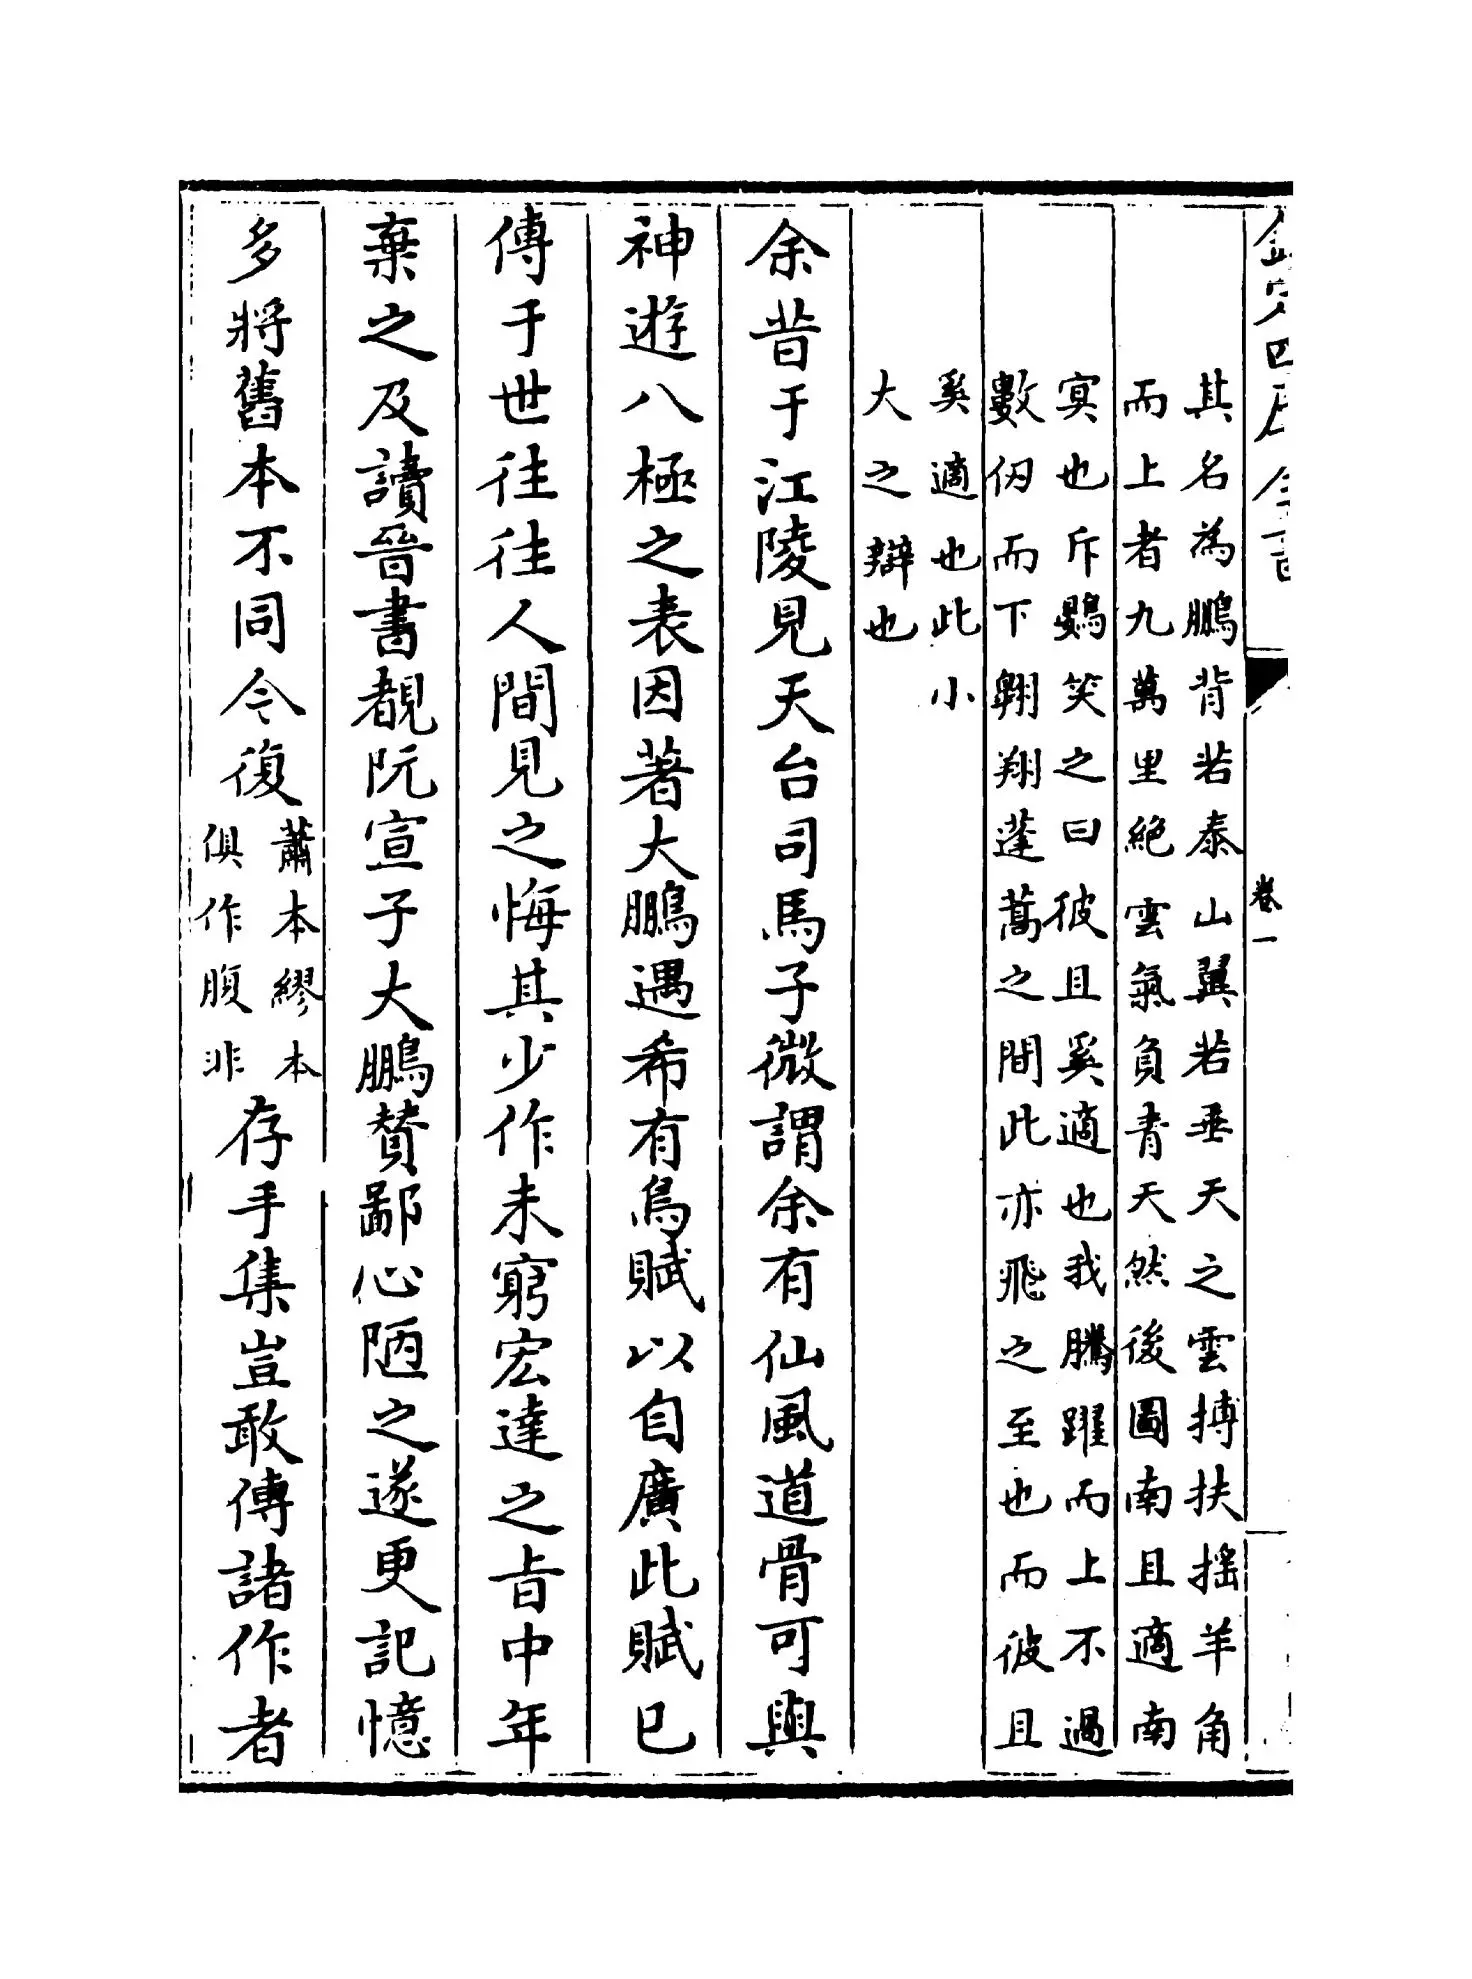 欽定四庫全書
卷一
其名為鵬背若泰山翼若垂天之雲搏扶搖羊角
而上者九萬里絶雲氣負青天然後圖南且適南
冥也斥鷃笑之曰彼且奚適也我騰躍而上不過
數仞而下翱翔蓬蒿之間此亦飛之至也而彼且
奚適也此小
大之辯也
余昔于江陵見天台司馬子微謂余有仙風道骨可與
神遊八極之表因著大鵬遇希有鳥賦以自廣此賦已
傳于世往往人間見之悔其少作未窮宏達之旨中年
棄之及讀晉書覩阮宣子大鵬賛鄙心陋之遂更記憶
多將舊本不同今復
蕭本繆本
俱作腹非
存手集豈敢傳諸作者